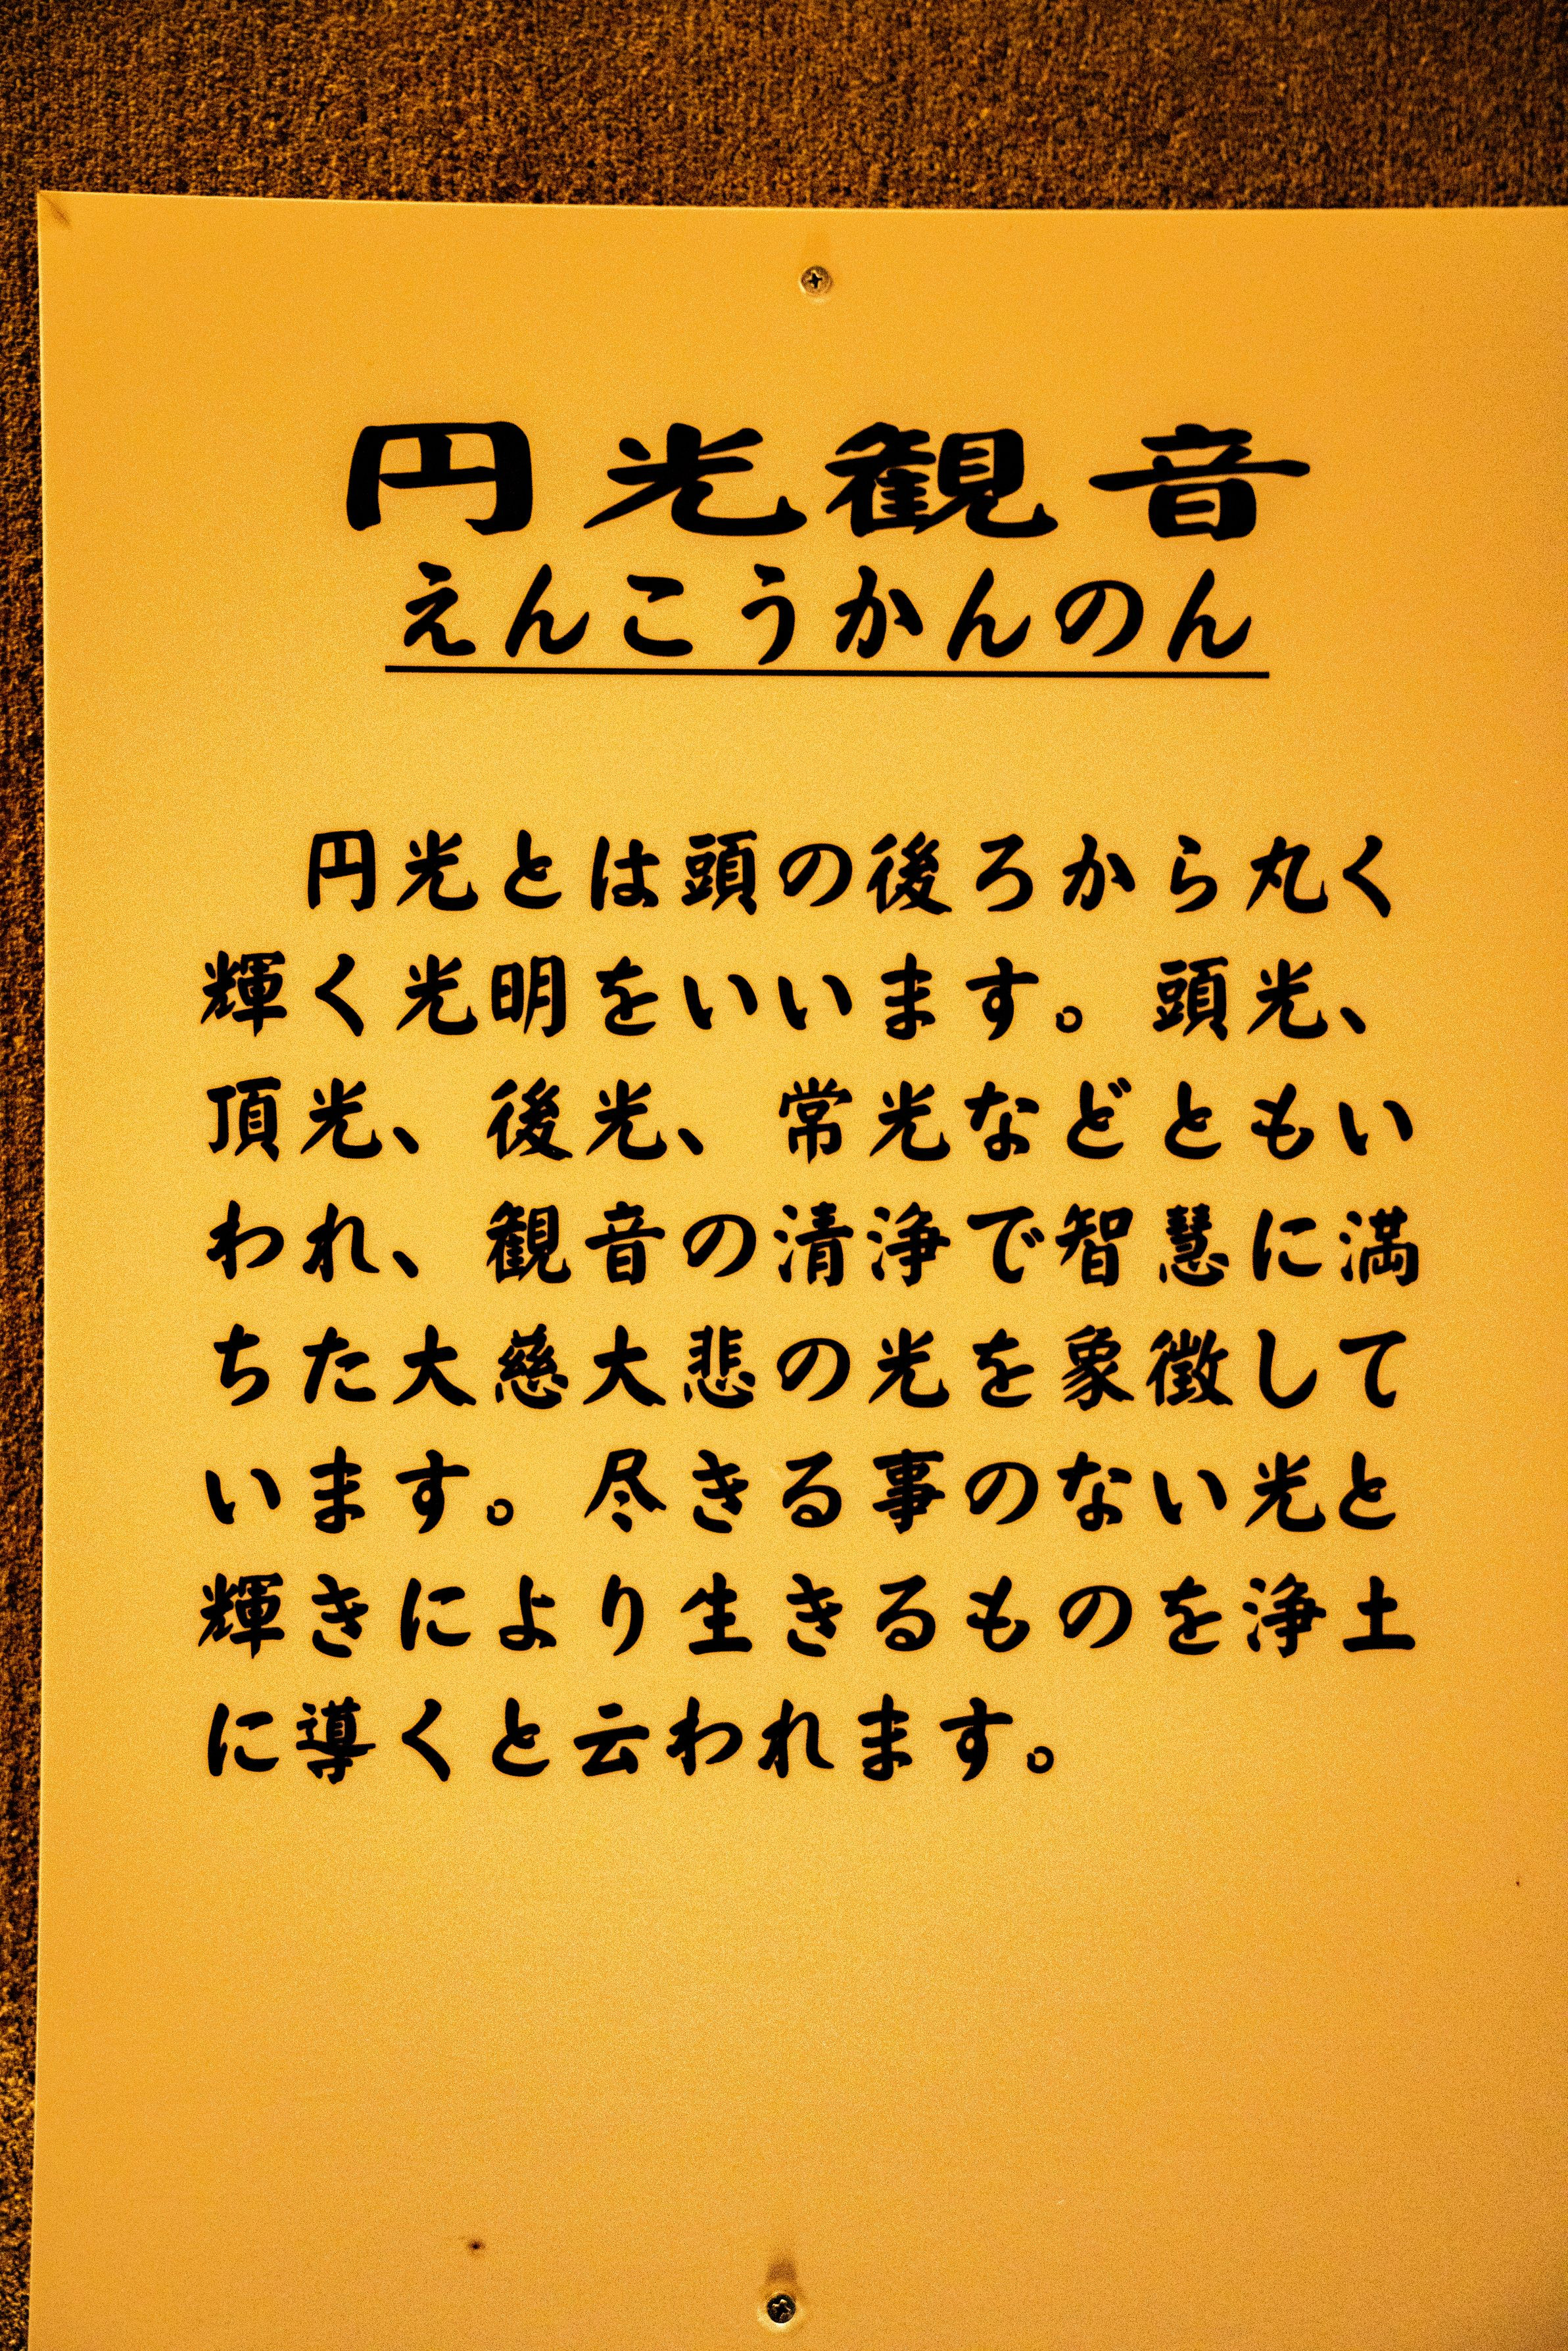 円光観音
えんこうかんのん
円光とは頭の後ろから丸く
輝く光明をいいます。頭光、
頂光、後光、常光などともい
われ、観音の清浄で智慧に満
ちた大慈大悲の光を象徴して
います。尽きる事のない光と
輝きにより生きるものを浄土
に導くと云われます。